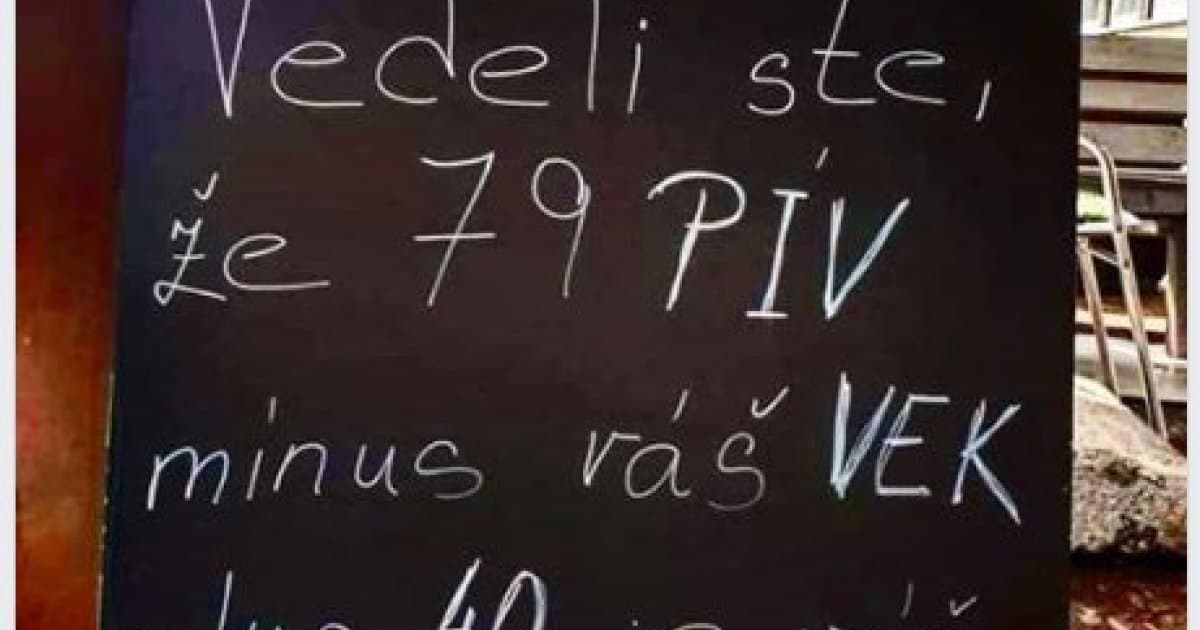 Vedeli ste,
že 79 PÍV
mínus váš VEK
40